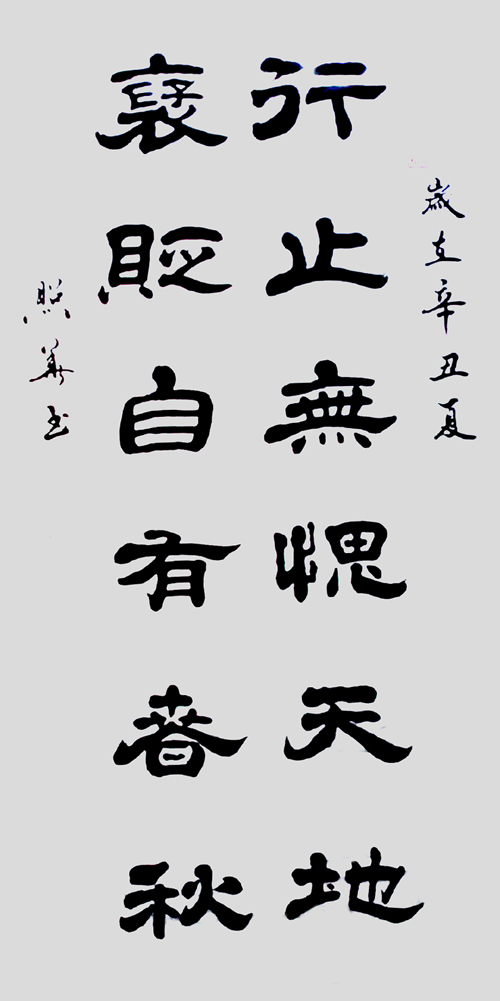 歲在辛丑夏
行止無愧天地
褒貶自有春秋
照華